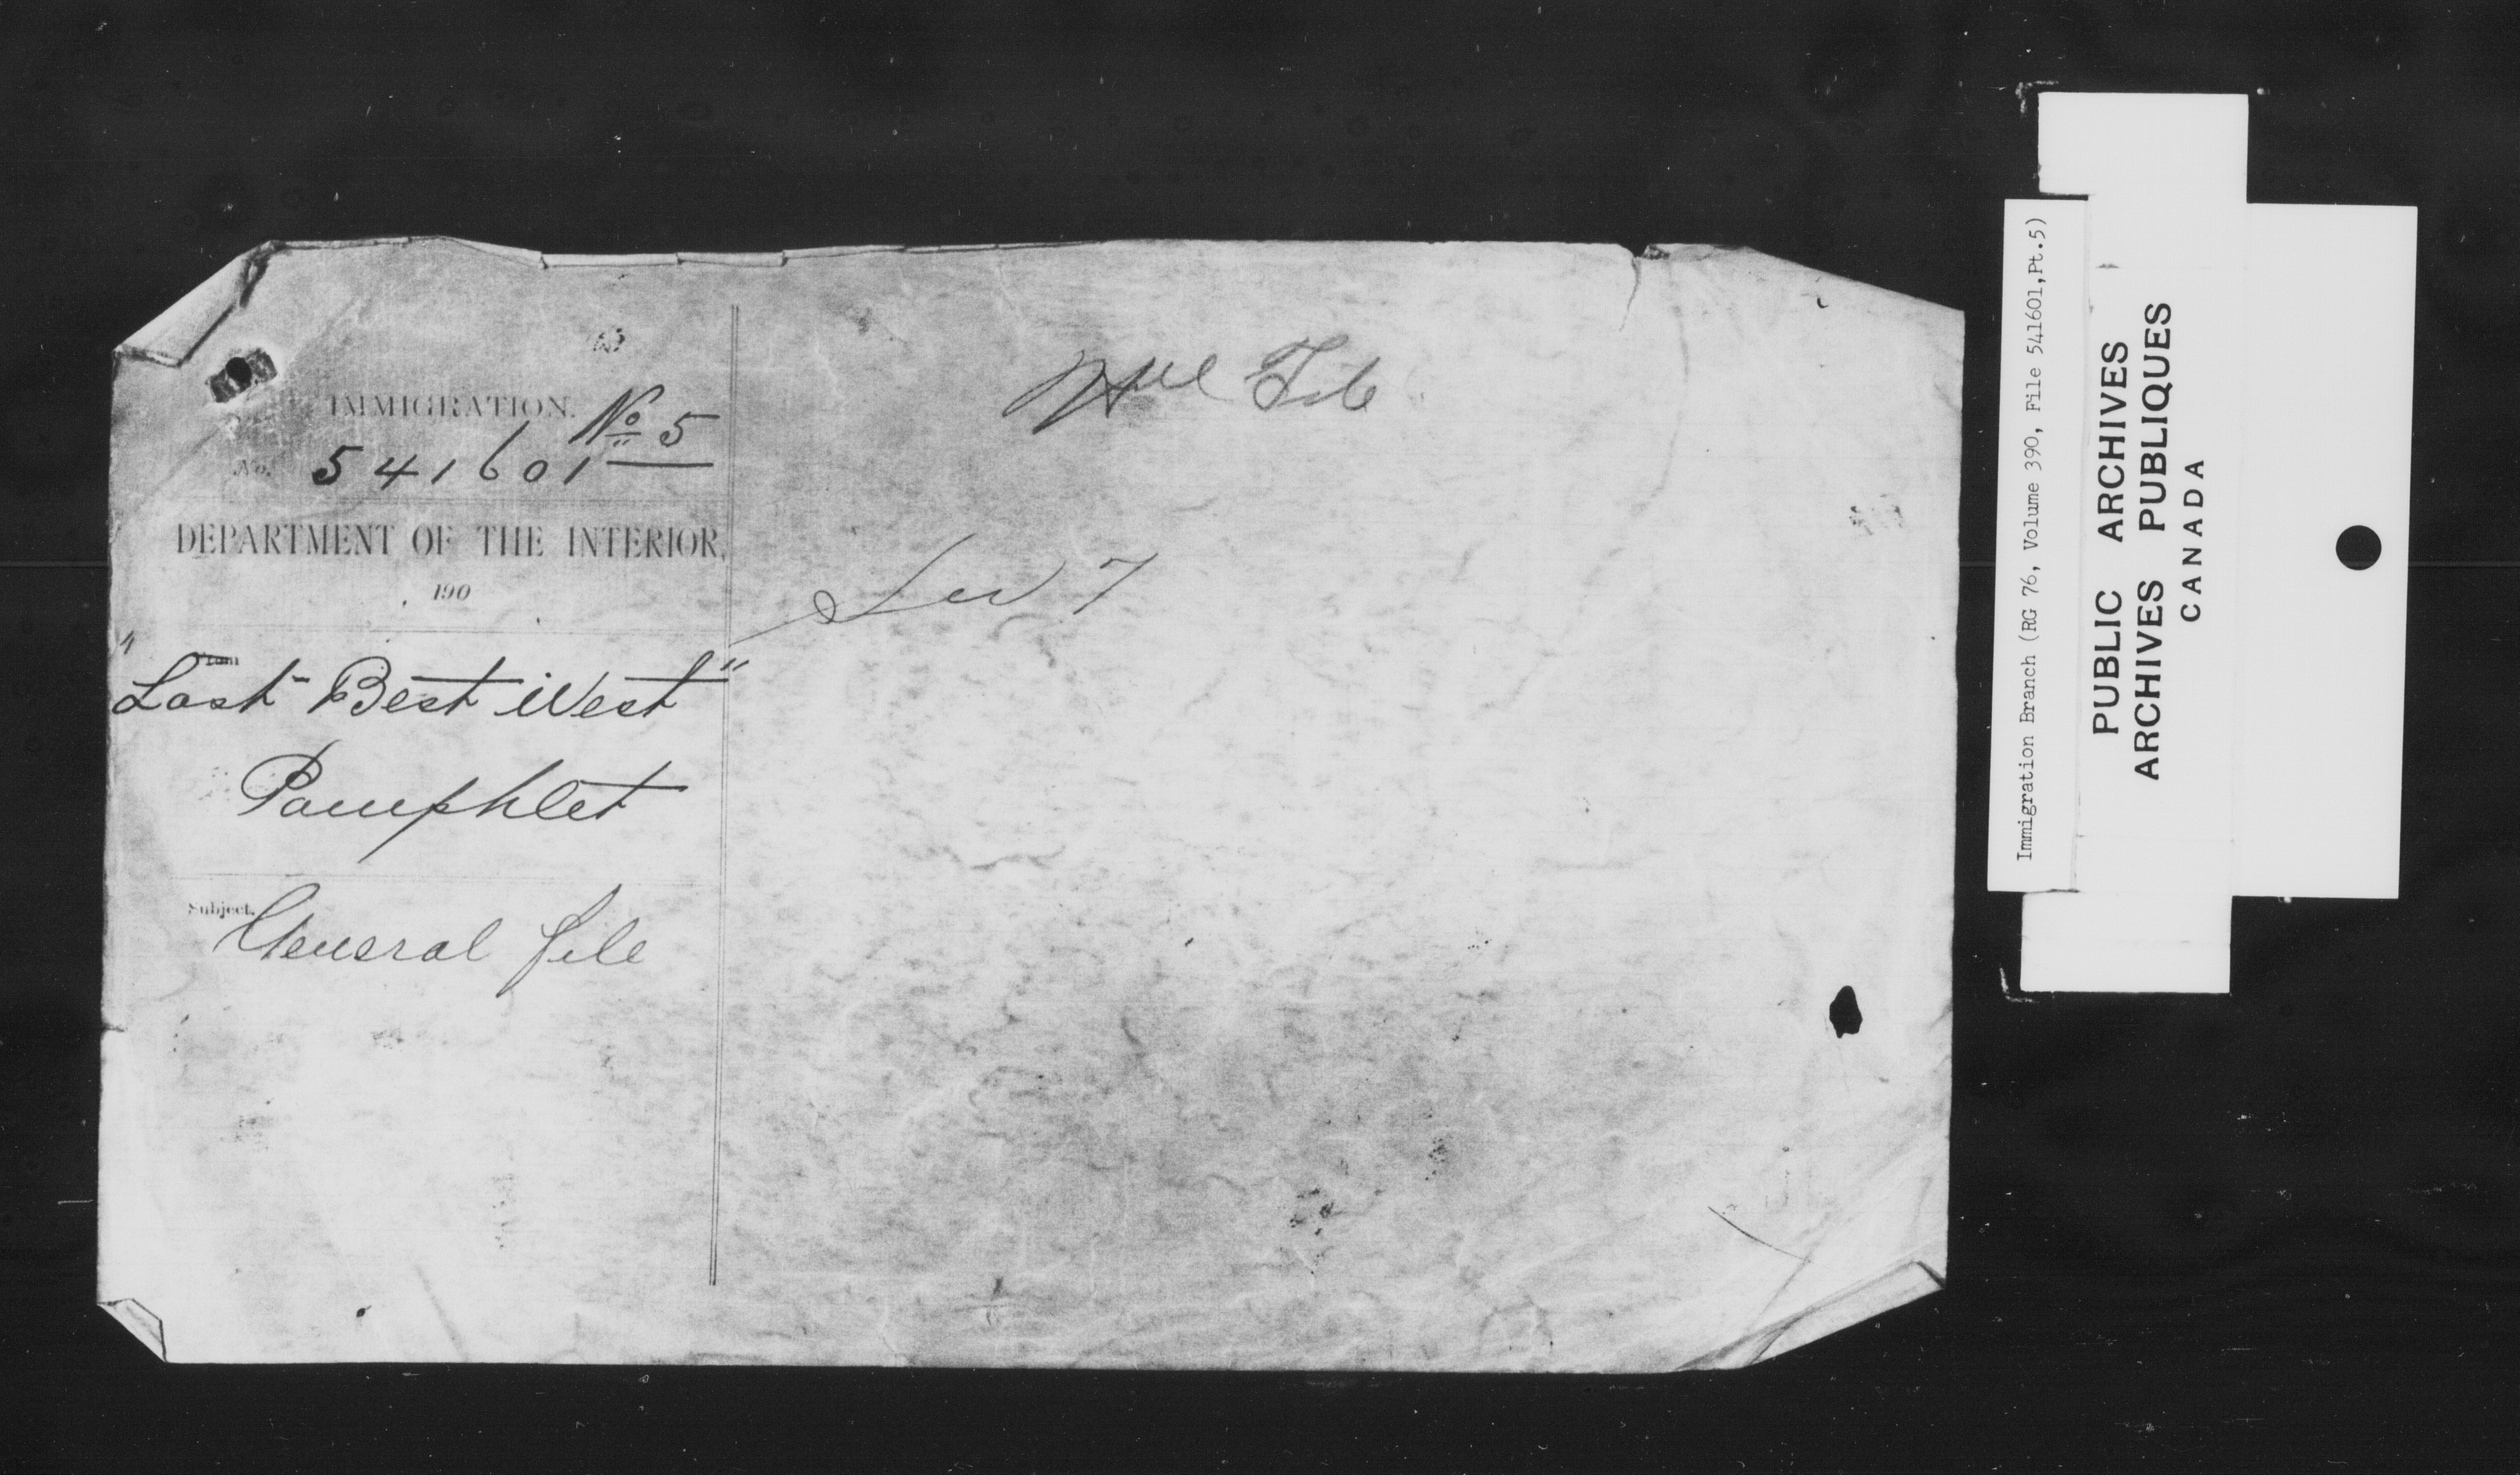 IMMIGRATION.
No 5
No. 541601
DEPARTMENT OF THE INTERIOR,
190
From
"Last Best West"
Pamphlet
Subject.
General file
Immigration Branch (RG 76, Volume 390, File 541601,Pt.5)
PUBLIC ARCHIVES
ARCHIVES PUBLIQUES
CANADA